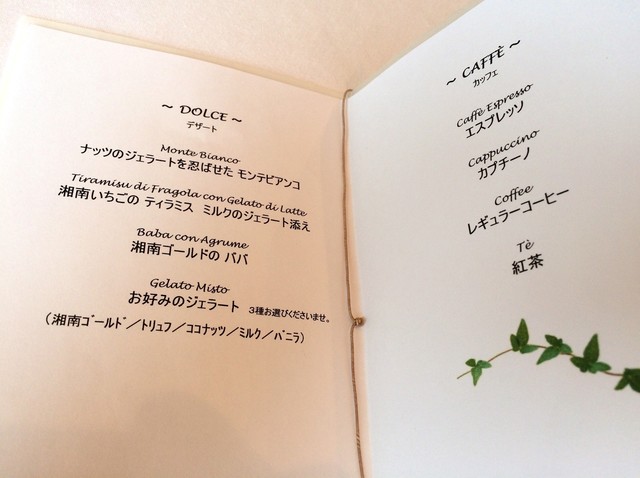 ~ DOLCE ~
デザート
Monte Bianco
ナッツのジェラートを忍ばせた モンテビアンコ
Tiramisu di Fragola con Gelato di Latte
湘南いちごの ティラミス ミルクのジェラート添え
Baba con Agrume
湘南ゴールドの ババ
Gelato Misto
お好みのジェラート 3種お選びくださいませ。
(湘南ｺﾞｰﾙﾄﾞ／ﾄﾘｭﾌ／ココナッツ／ミルク／ﾊﾞﾆﾗ)
~ CAFFÈ ~
カッフェ
Caffè Espresso
エスプレッソ
Cappuccino
カプチーノ
Coffee
レギュラーコーヒー
Tè
紅茶